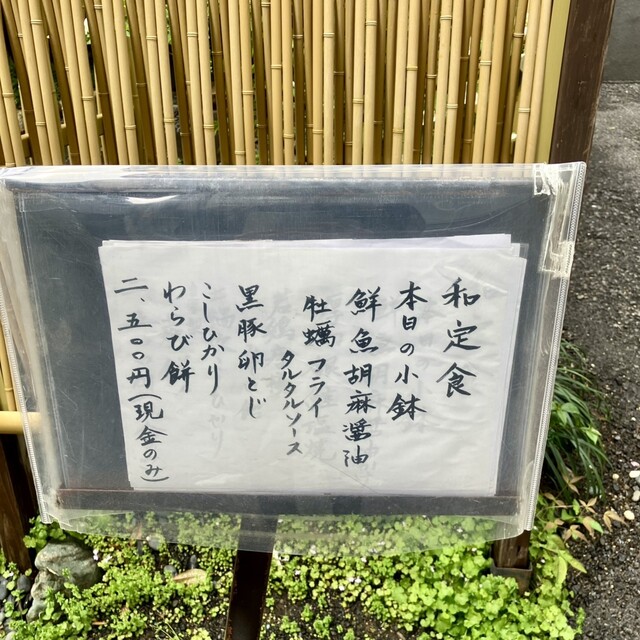 和定食
本日の小鉢
鮮魚胡麻醤油
牡蠣フライ
タルタルソース
黒豚卵とじ
こしひかり
わらび餅
二、五〇〇円(現金のみ)